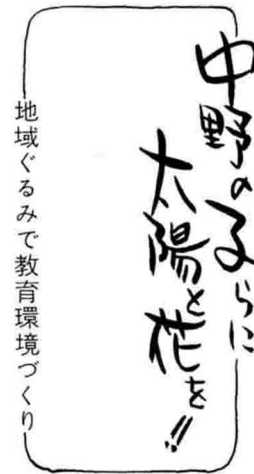 中野の子らに
太陽と花を!!
地域ぐるみで教育環境づくり